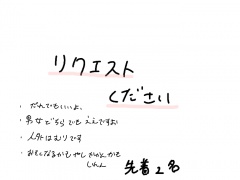 リクエスト
ください
・だれでもいいよ。
・男女どちらでもええですよ
・人外はむりです
・おそくなるかもやし
しれん
先着2名